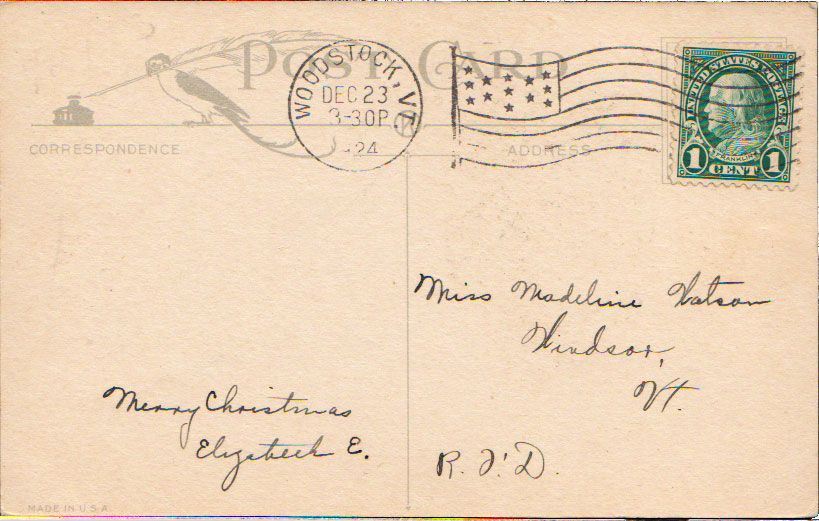 POST CARD
WOODSTOCK, VT.
DEC 23
3-30P
-24
UNITED STATES POSTAGE
FRANKLIN
1 CENT 1
CORRESPONDENCE
ADDRESS
Miss Madeline Watson
Windsor,
Vt.
R.F.D.
Merry Christmas
Elizabeth E.
MADE IN U.S.A.